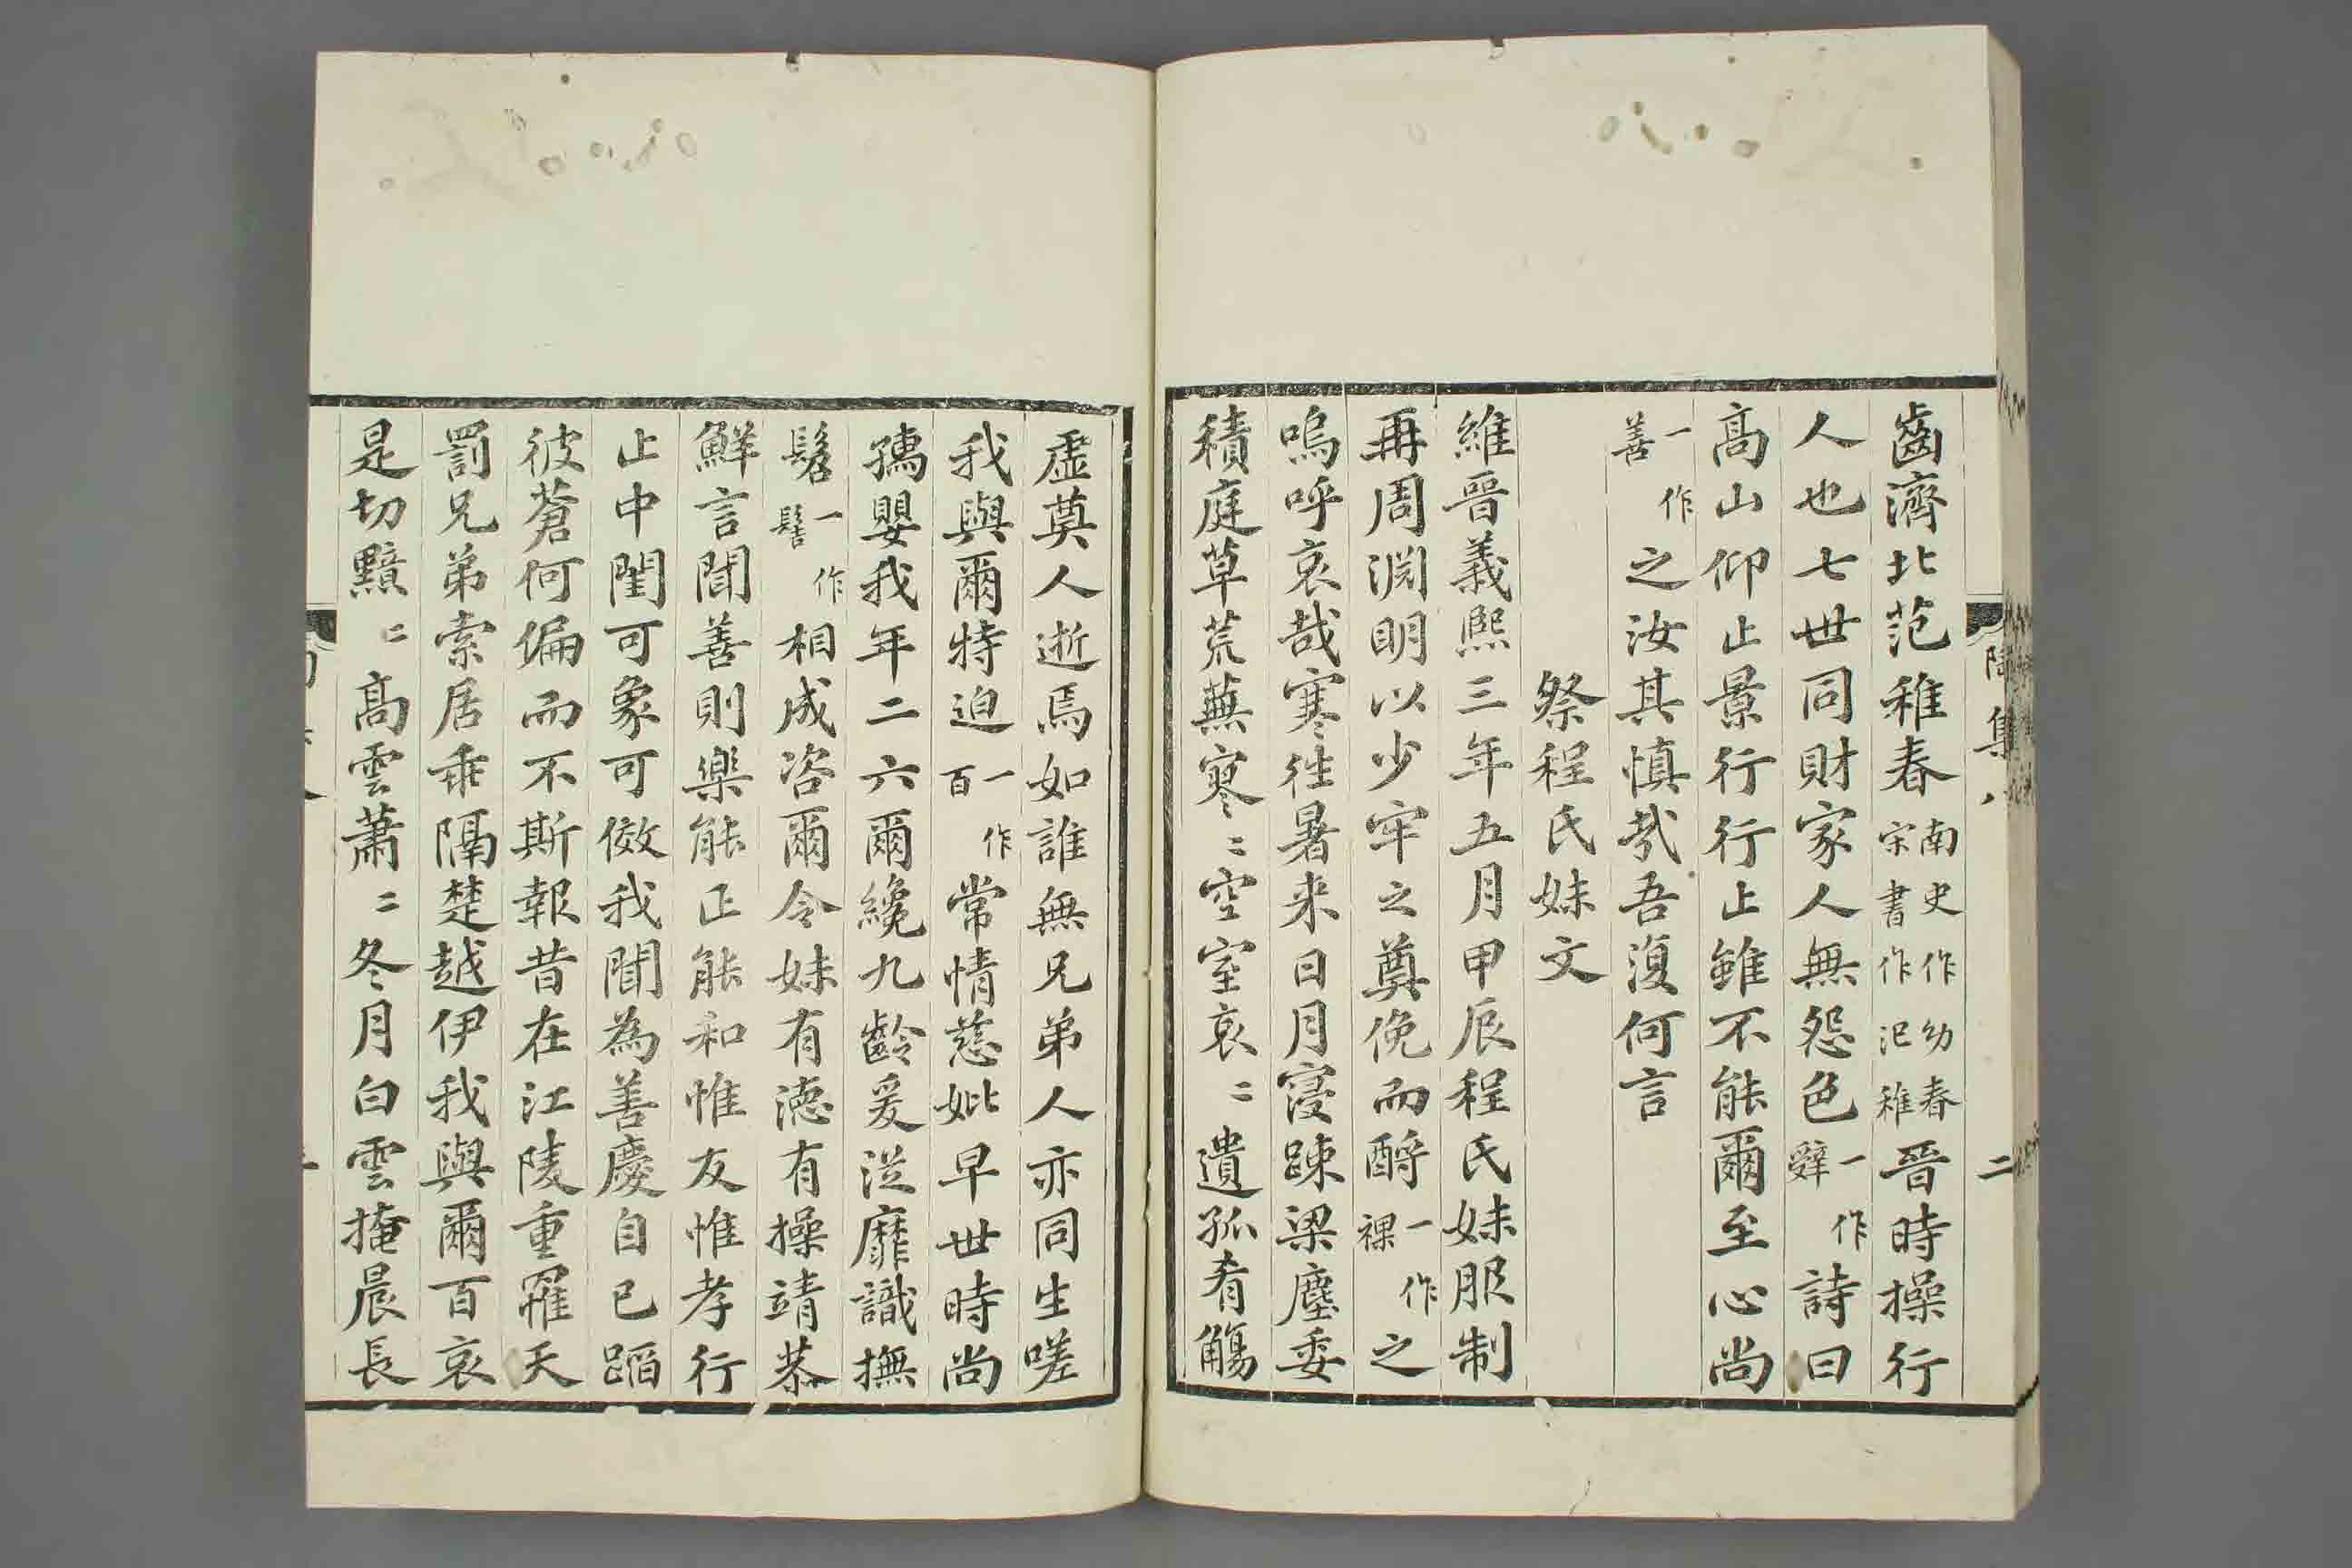 陶集八 二
齒濟北范稚春南史作幼春宋書作汜稚晉時操行
人也七世同財家人無怨色一作辤詩曰
高山仰止景行行止雖不能爾至心尚
一作善之汝其慎哉吾復何言
祭程氏妹文
維晉義熙三年五月甲辰程氏妹服制
再周淵明以少牢之奠俛而酹一作祼之
嗚呼哀哉寒徃暑来日月寖踈梁塵委
積庭草荒蕪寥〻空室哀〻遺孤肴觴
虛奠人逝焉如誰無兄弟人亦同生嗟
我與爾特迫一作百常情慈妣早世時尚
孺嬰我年二六爾纔九齡爰從靡識撫
髫一作髻相成咨爾令妹有德有操靖恭
鮮言聞善則樂能正能和惟友惟孝行
止中閨可象可倣我聞為善慶自己蹈
彼蒼何偏而不斯報昔在江陵重罹天
罰兄弟索居乖隔楚越伊我與爾百哀
是切黯〻高雲蕭〻冬月白雲掩晨長